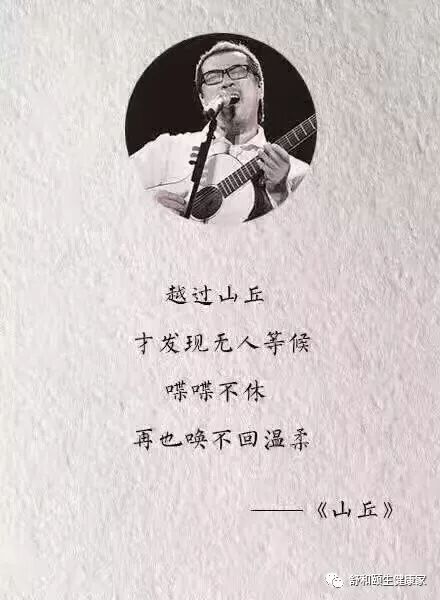 越过山丘
才发现无人等候
喋喋不休
再也唤不回温柔
——《山丘》
舒和颐生健康家